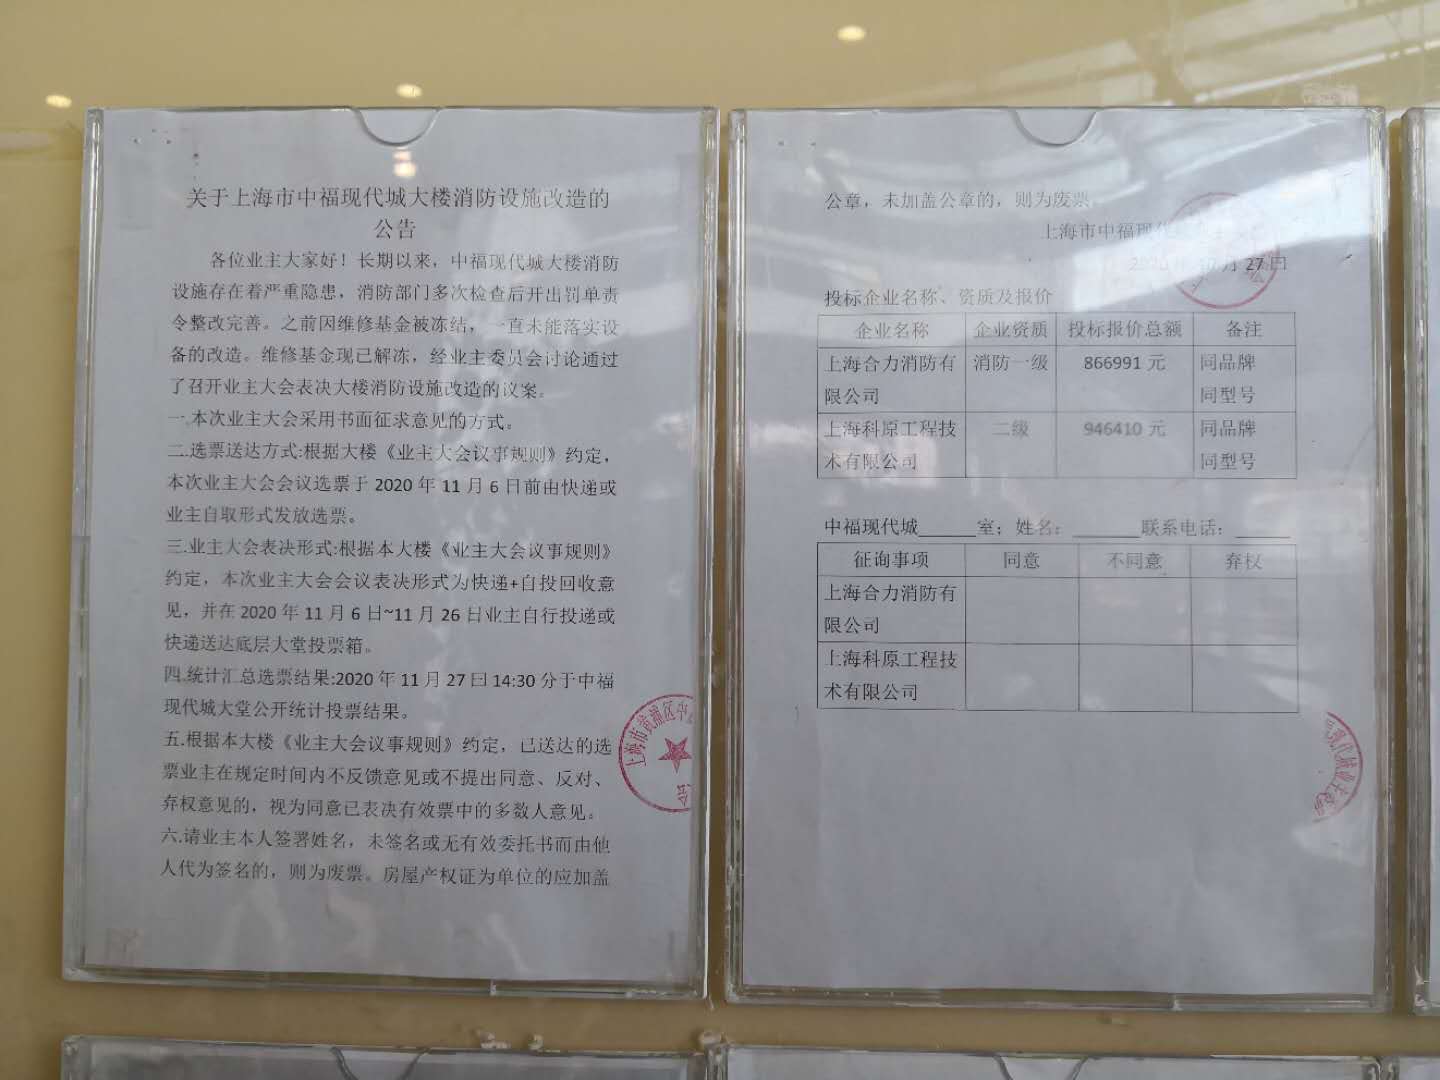 关于上海市中福现代城大楼消防设施改造的
公告
各位业主大家好！长期以来，中福现代城大楼消防
设施存在着严重隐患，消防部门多次检查后开出罚单责
令整改完善。之前因维修基金被冻结，一直未能落实设
备的改造。维修基金现已解冻，经业主委员会讨论通过
了召开业主大会表决大楼消防设施改造的议案。
一.本次业主大会采用书面征求意见的方式。
二.选票送达方式:根据大楼《业主大会议事规则》约定，
本次业主大会会议选票于 2020 年 11 月 6 日前由快递或
业主自取形式发放选票。
三.业主大会表决形式:根据本大楼《业主大会议事规则》
约定，本次业主大会会议表决形式为快递+自投回收意
见，并在 2020 年 11 月 6 日~11 月 26 日业主自行投递或
快递送达底层大堂投票箱。
四.统计汇总选票结果:2020 年 11 月 27 日 14:30 分于中福
现代城大堂公开统计投票结果。
五.根据本大楼《业主大会议事规则》约定，已送达的选
票业主在规定时间内不反馈意见或不提出同意、反对、
弃权意见的，视为同意已表决有效票中的多数人意见。
六.请业主本人签署姓名，未签名或无有效委托书而由他
人代为签名的，则为废票。房屋产权证为单位的应加盖
上海市黄浦区中
会
公章，未加盖公章的，则为废票
上海市中福现
2020 年 10 月 27 日
投标企业名称、资质及报价
企业名称 企业资质 投标报价总额 备注
上海合力消防有 消防一级 866991 元 同品牌
限公司 同型号
上海科原工程技 二级 946410 元 同品牌
术有限公司 同型号
中福现代城______室；姓名：_______联系电话：______
征询事项 同意 不同意 弃权
上海合力消防有
限公司
上海科原工程技
术有限公司
现代城业主委